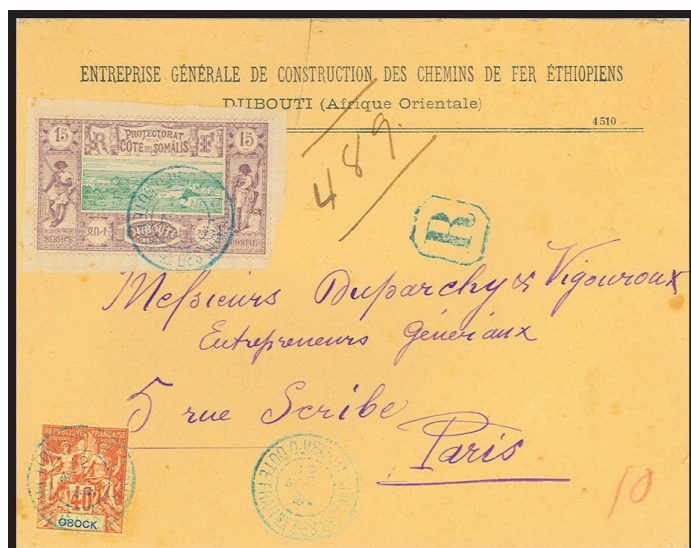 ENTREPRISE GÉNÉRALE DE CONSTRUCTION DES CHEMINS DE FER ÉTHIOPIENS
DJIBOUTI (Afrique Orientale)
4510
489.
15 PROTECTORAT 15
R CÔTE DES SOMALIS F
DJIBOUTI
SERVICE POSTAL
R
Messieurs Duparchy & Vigouroux
Entrepreneurs Généraux
5 rue Scribe
Paris
RÉPUBLIQUE FRANÇAISE
40
OBOCK
10